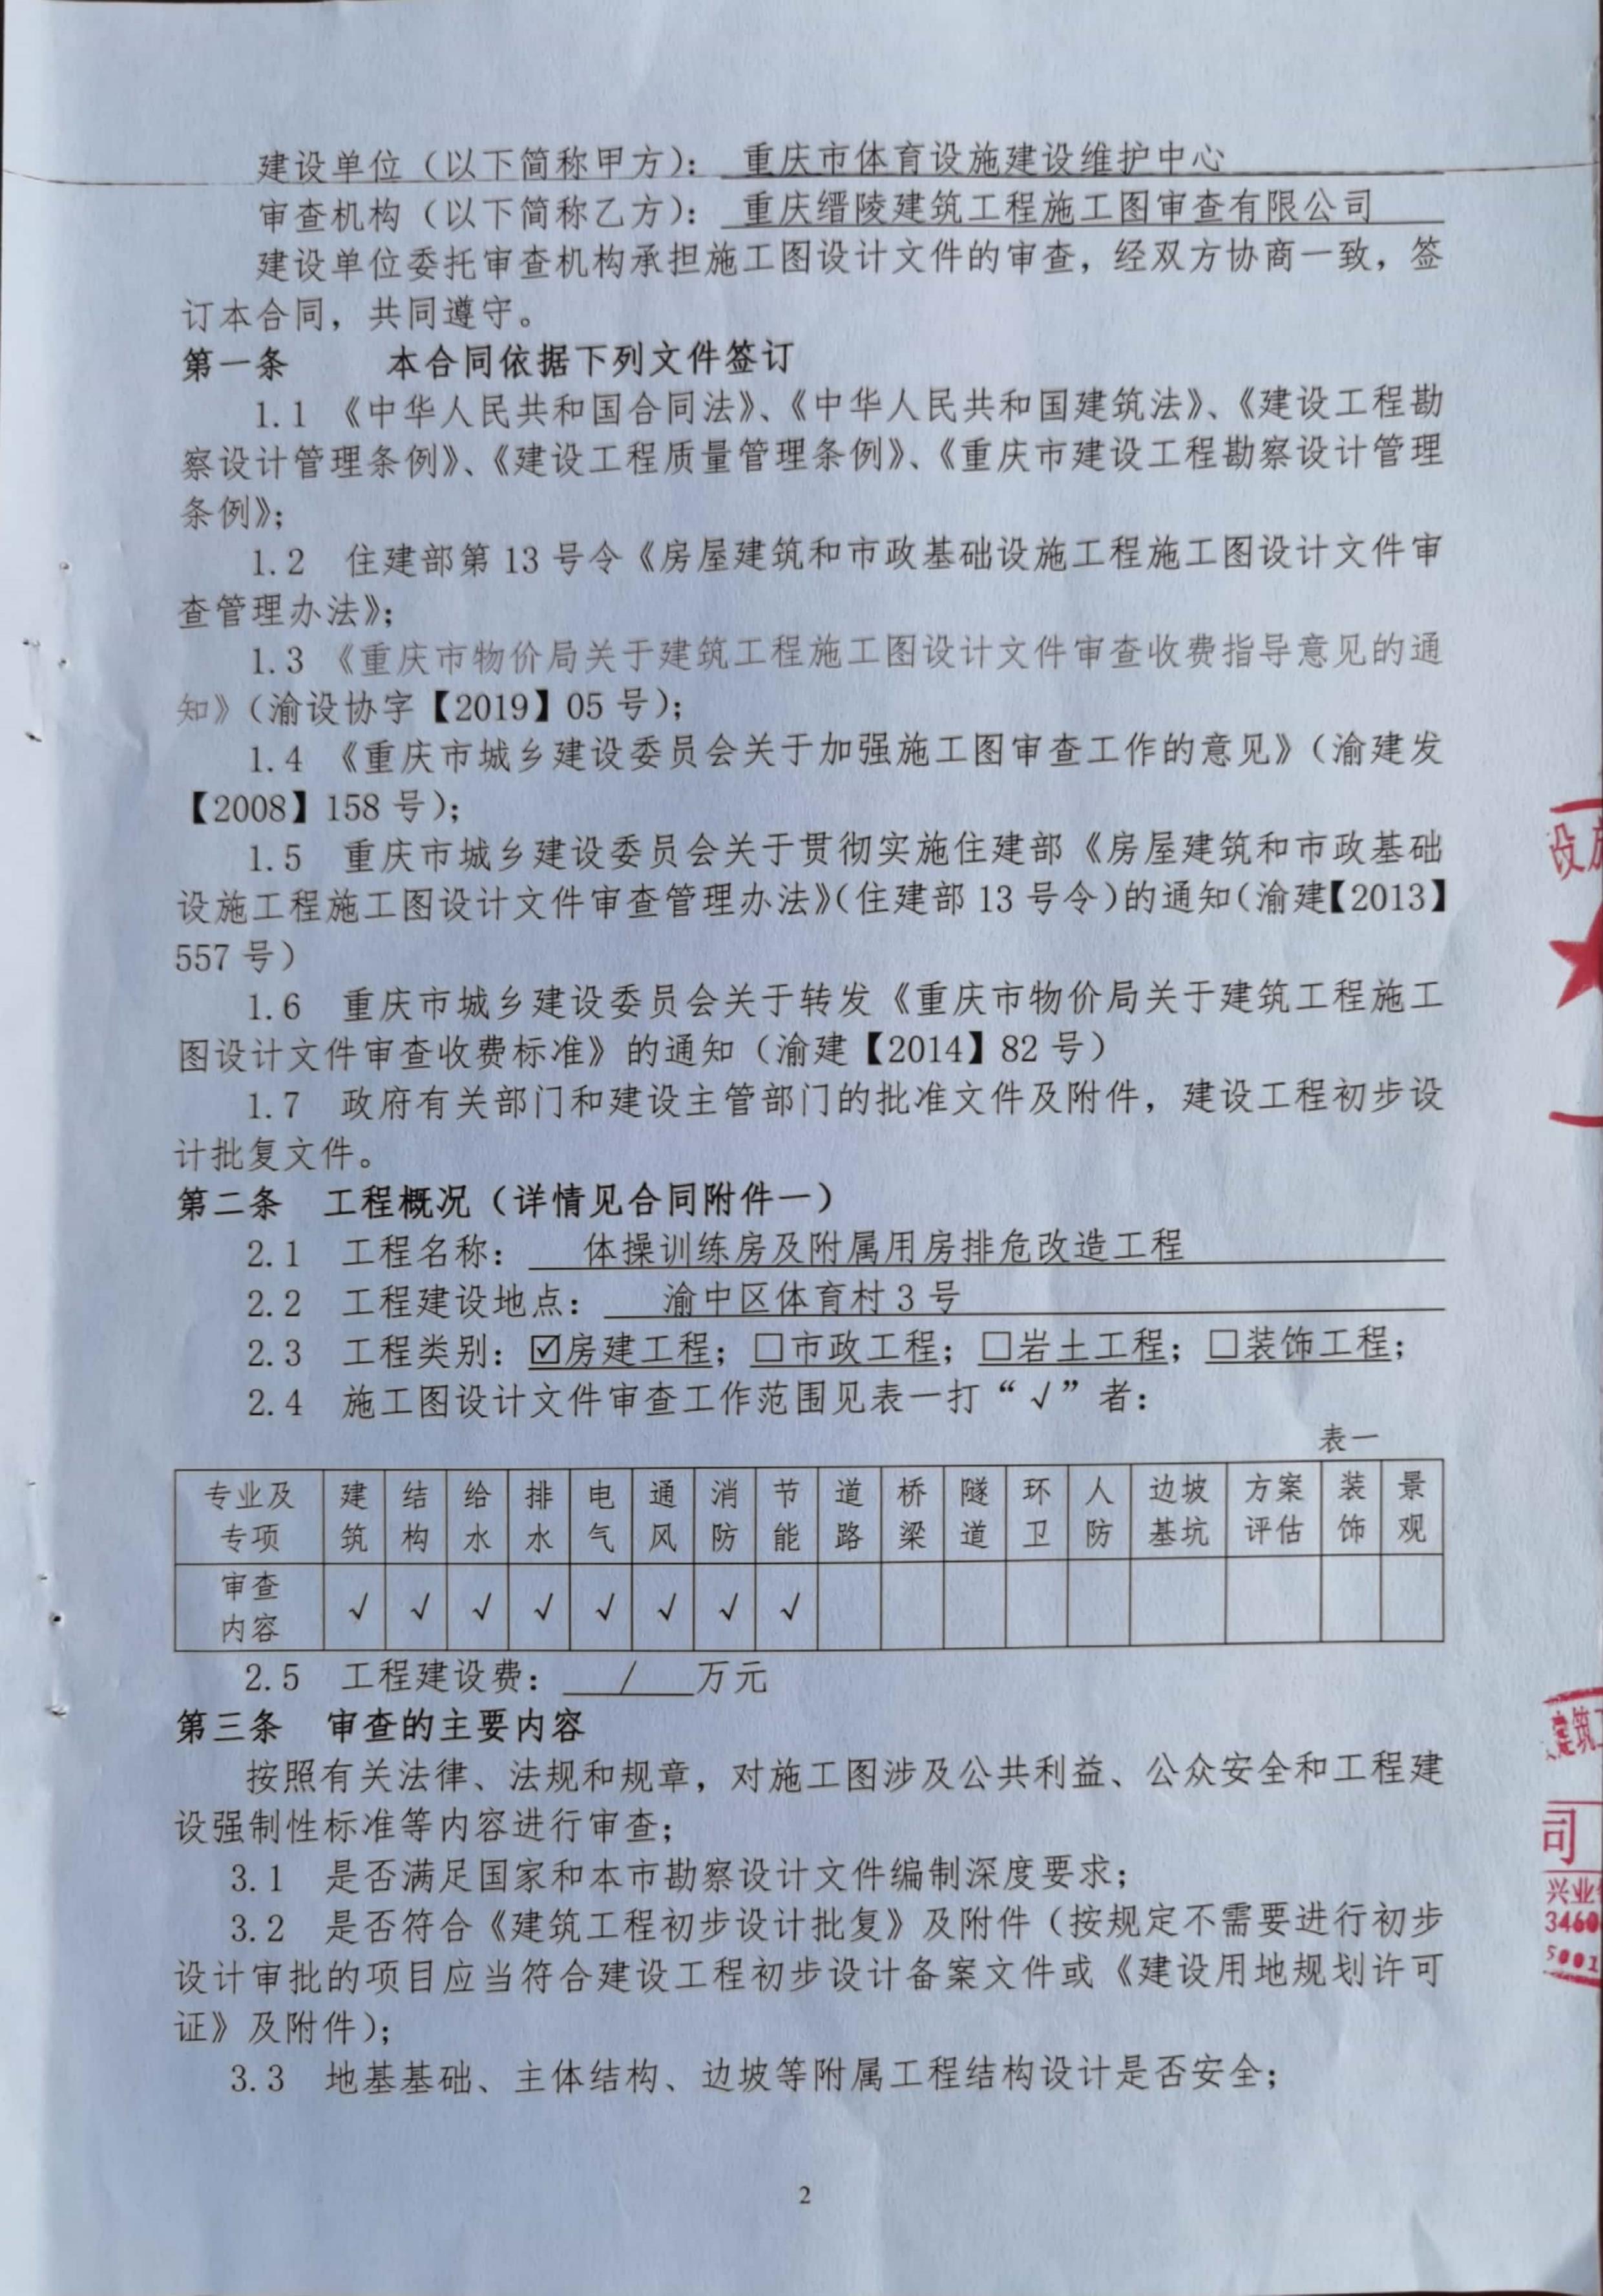 建设单位（以下简称甲方）： 重庆市体育设施建设维护中心
审查机构（以下简称乙方）： 重庆缙陵建筑工程施工图审查有限公司
建设单位委托审查机构承担施工图设计文件的审查，经双方协商一致，签
订本合同，共同遵守。
第一条 本合同依据下列文件签订
1.1 《中华人民共和国合同法》、《中华人民共和国建筑法》、《建设工程勘
察设计管理条例》、《建设工程质量管理条例》、《重庆市建设工程勘察设计管理
条例》；
1.2 住建部第 13 号令《房屋建筑和市政基础设施工程施工图设计文件审
查管理办法》；
1.3 《重庆市物价局关于建筑工程施工图设计文件审查收费指导意见的通
知》（渝设协字【2019】05 号）；
1.4 《重庆市城乡建设委员会关于加强施工图审查工作的意见》（渝建发
【2008】158 号）；
1.5 重庆市城乡建设委员会关于贯彻实施住建部《房屋建筑和市政基础
设施工程施工图设计文件审查管理办法》（住建部 13 号令）的通知（渝建【2013】
557 号）
1.6 重庆市城乡建设委员会关于转发《重庆市物价局关于建筑工程施工
图设计文件审查收费标准》的通知（渝建【2014】82 号）
1.7 政府有关部门和建设主管部门的批准文件及附件，建设工程初步设
计批复文件。
第二条 工程概况（详情见合同附件一）
2.1 工程名称： 体操训练房及附属用房排危改造工程
2.2 工程建设地点： 渝中区体育村 3 号
2.3 工程类别：☑房建工程；☐市政工程；☐岩土工程；☐装饰工程；
2.4 施工图设计文件审查工作范围见表一打“√”者：
表一
专业及专项 建筑 结构 给水 排水 电气 通风 消防 节能 道路 桥梁 隧道 环卫 人防 边坡基坑 方案评估 装饰 景观
审查内容 √ √ √ √ √ √ √ √
2.5 工程建设费： / 万元
第三条 审查的主要内容
按照有关法律、法规和规章，对施工图涉及公共利益、公众安全和工程建
设强制性标准等内容进行审查；
3.1 是否满足国家和本市勘察设计文件编制深度要求；
3.2 是否符合《建筑工程初步设计批复》及附件（按规定不需要进行初步
设计审批的项目应当符合建设工程初步设计备案文件或《建设用地规划许可
证》及附件）；
3.3 地基基础、主体结构、边坡等附属工程结构设计是否安全；
2
设
建筑
司
兴业
3460
5001